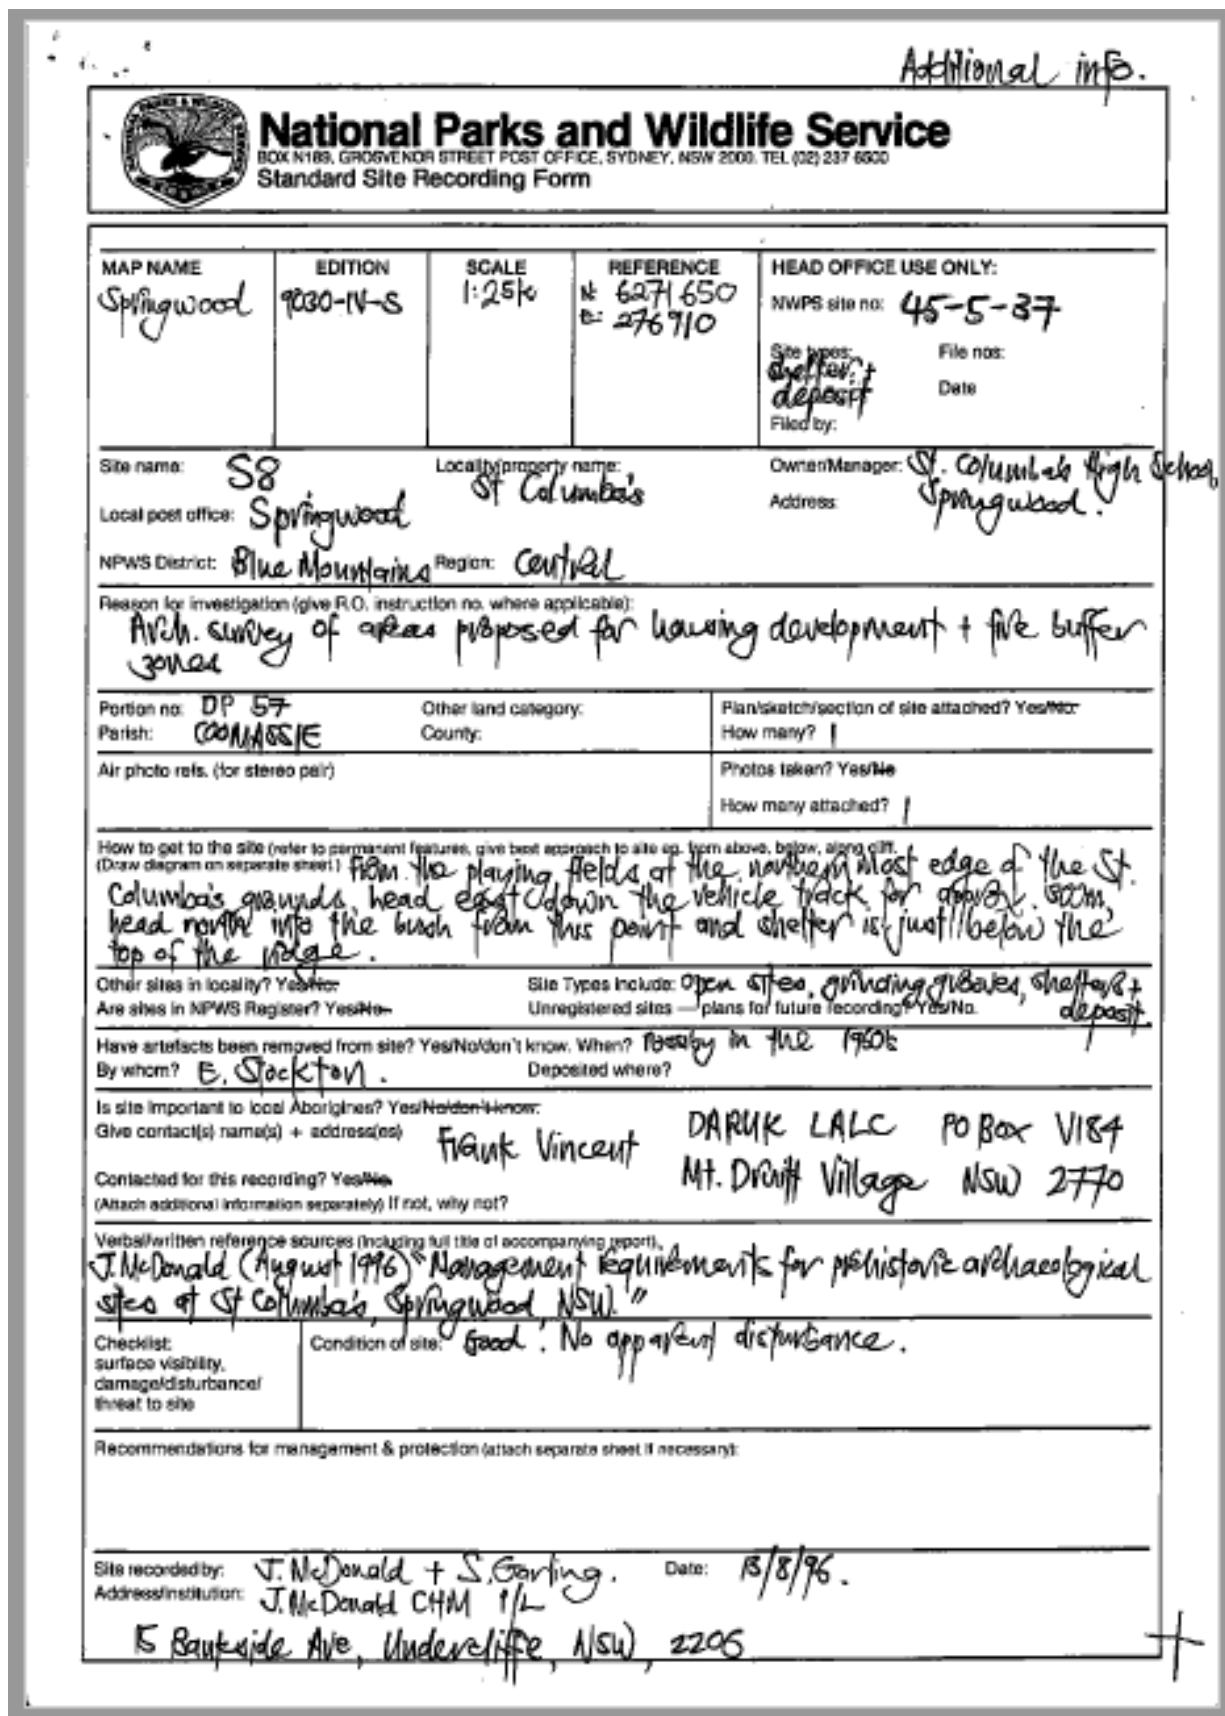 Additional info.
National Parks and Wildlife Service
BOX N189, GROSVENOR STREET POST OFFICE, SYDNEY, NSW 2000. TEL (02) 237 6500
Standard Site Recording Form
MAP NAME EDITION SCALE REFERENCE HEAD OFFICE USE ONLY:
Springwood 9030-IV-S 1:25k N: 6271650
E: 276910
NWPS site no: 45-5-37
Site types: File nos:
shelter + deposit Date
Filed by:
Site name: S8 Locality/property name: St Columba's Owner/Manager: St. Columba's High School,
Local post office: Springwood Address: Springwood.
NPWS District: Blue Mountains Region: Central
Reason for investigation (give R.O. instruction no. where applicable):
Arch. survey of areas proposed for housing development + fire buffer
zones
Portion no: DP 57 Other land category: Plan/sketch/section of site attached? Yes/No:
Parish: COOMASSIE County: How many? 1
Air photo refs. (for stereo pair) Photos taken? Yes/No
How many attached? 1
How to get to the site (refer to permanent features, give best approach to site eg. from above, below, along cliff.
(Draw diagram on separate sheet.) From the playing fields at the northern most edge of the St.
Columba's grounds, head east down the vehicle track for approx.
head north into the bush from this point and shelter is just below the
top of the ridge.
Other sites in locality? Yes/No: Site Types Include: Open sites, grinding grooves, shelters +
deposit
Are sites in NPWS Register? Yes/No Unregistered sites — plans for future recording? Yes/No.
Have artefacts been removed from site? Yes/No/don't know. When? Possby in the 1960s
By whom? E. Stockton. Deposited where?
Is site important to local Aborigines? Yes/No/don't know:
Give contact(s) name(s) + address(es) Frank Vincent DARUK LALC PO Box V184
Mt. Druitt Village NSW 2770
Contacted for this recording? Yes/No.
(Attach additional information separately) If not, why not?
Verbal/written reference sources (including full title of accompanying report),
J. McDonald (August 1996) "Management requirements for prehistoric archaeological
sites at St Columba's, Springwood, NSW."
Checklist: Condition of site: Good. No apparent disturbance.
surface visibility,
damage/disturbance/
threat to site
Recommendations for management & protection (attach separate sheet if necessary):
Site recorded by: J. McDonald + S. Garling. Date: 13/8/96.
Address/institution: J. McDonald CHM P/L
15 Bankside Ave, Undercliffe, NSW, 2206